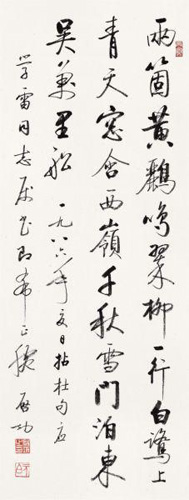 兩箇黃鸝鳴翠柳一行白鷺上
青天窓含西嶺千秋雪門泊東
吳萬里船 一九八六年夏日拈杜句應
學雷同志属書即希正腕 啟功